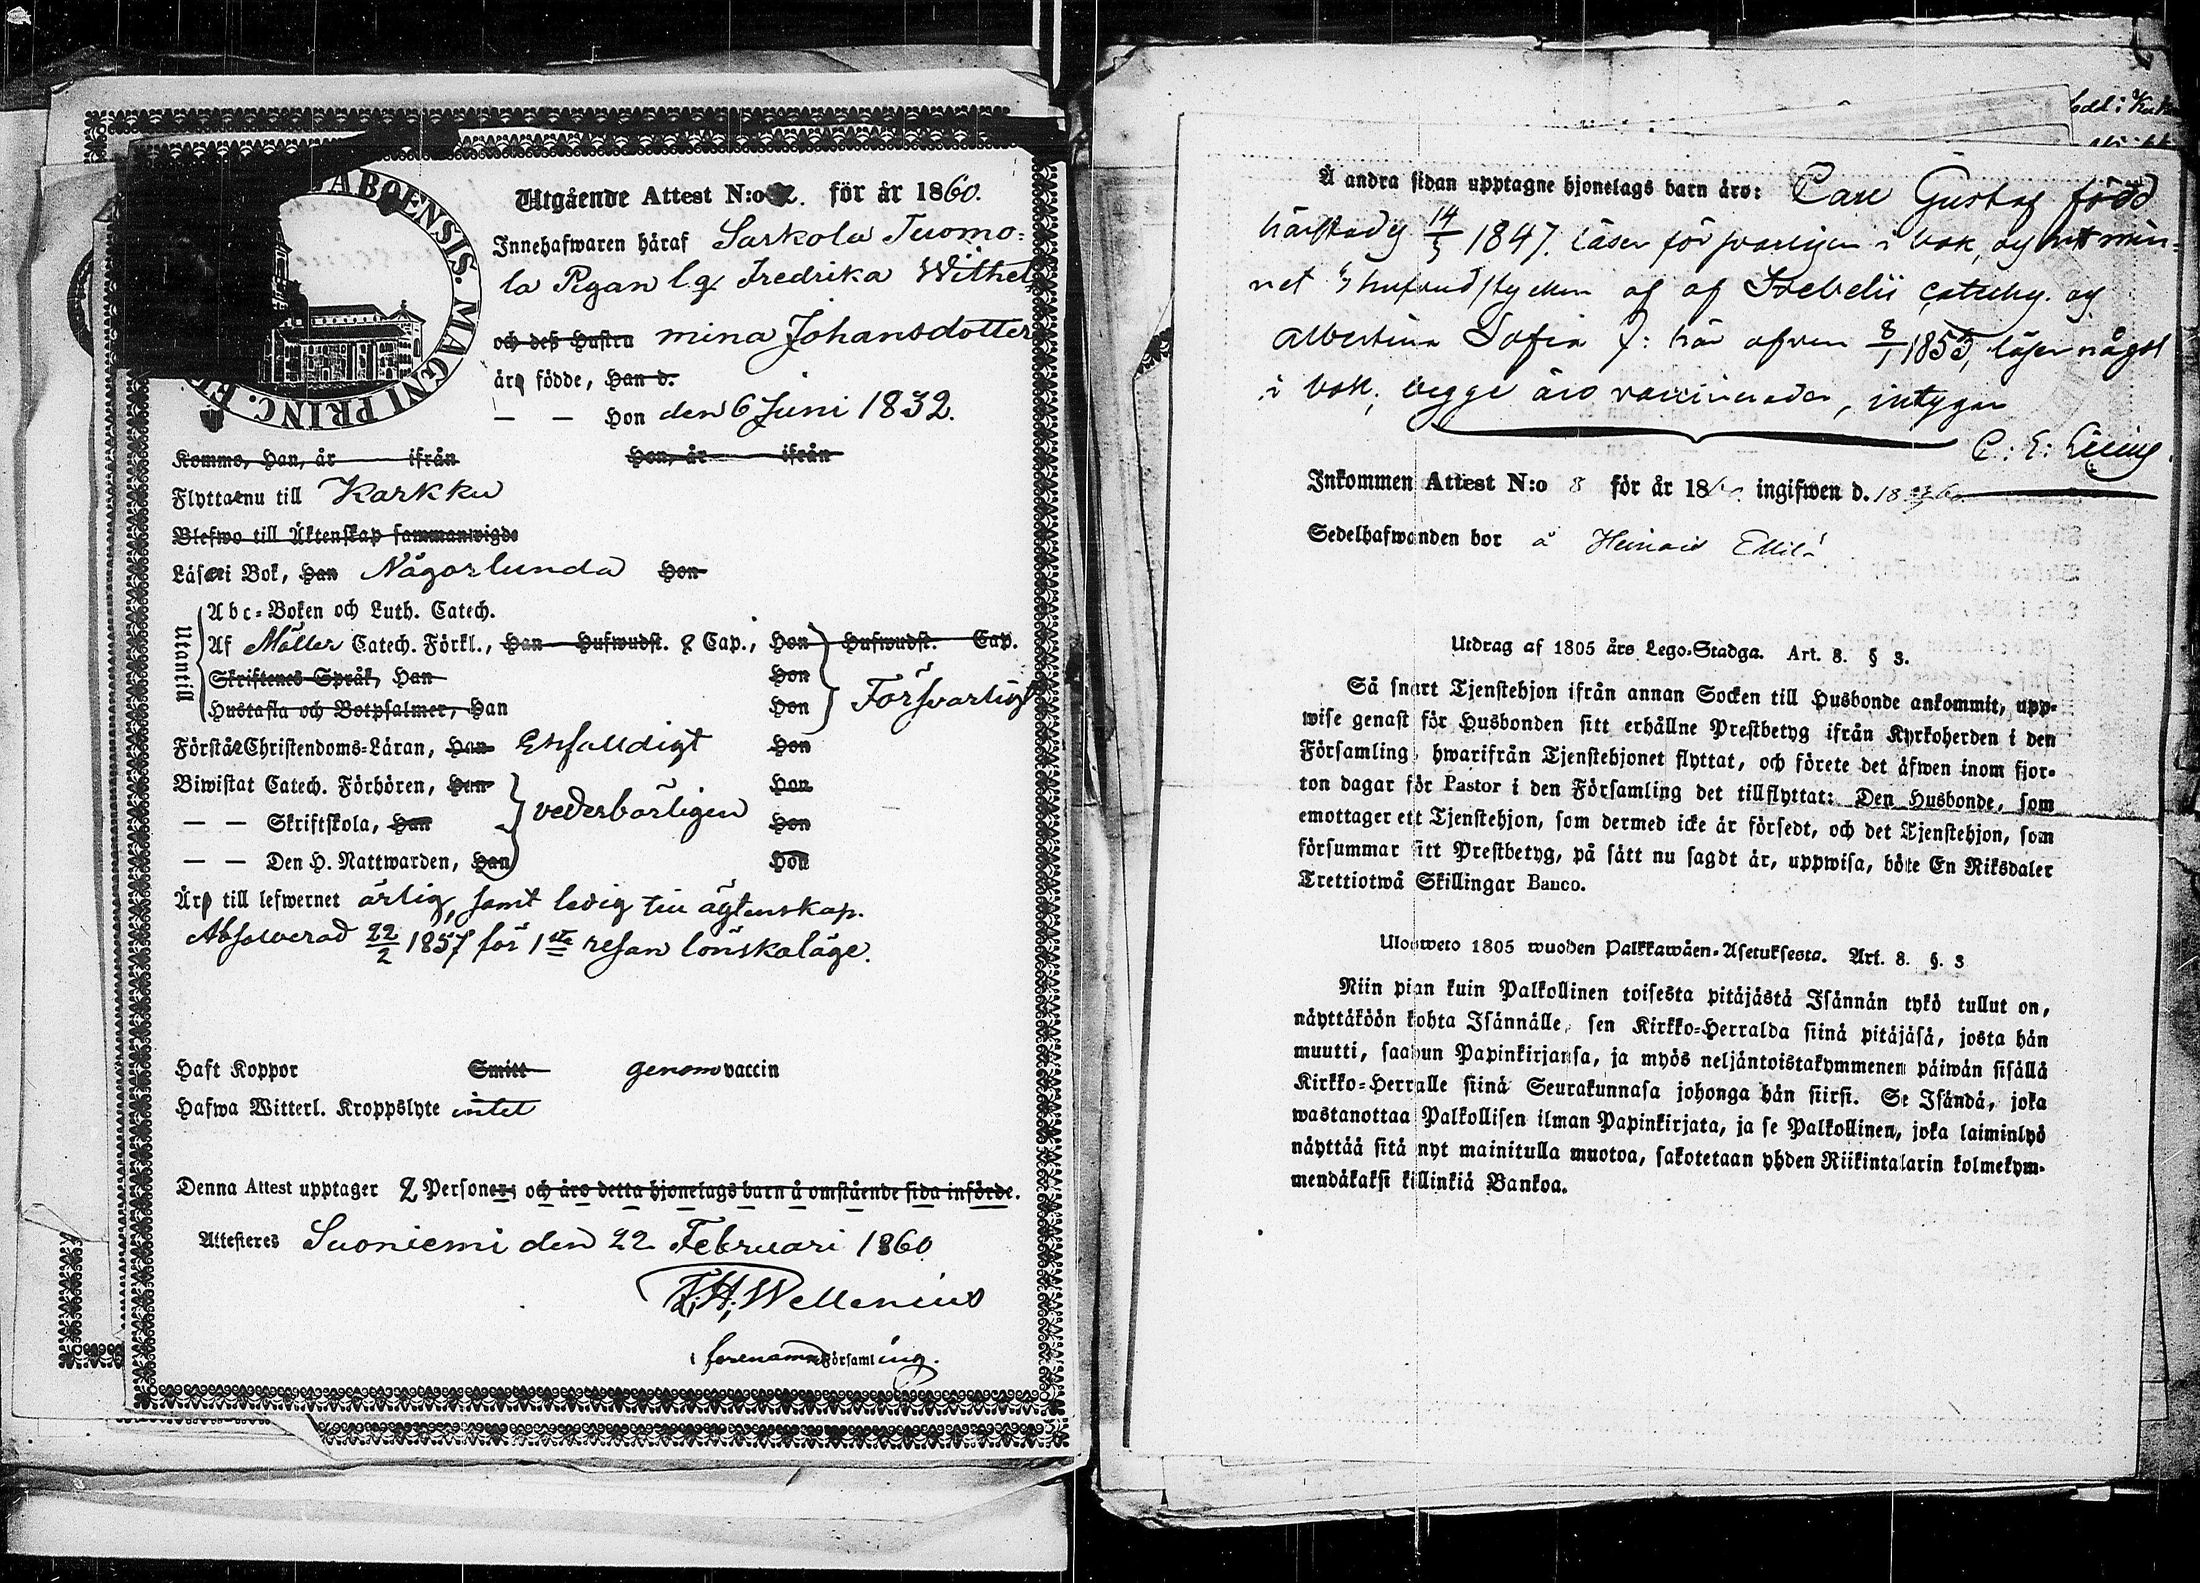 ABOENSIS. MAGNI PRINC.
Utgående Attest N:o 2. för år 1860.
Innehafwaren häraf Sarkola Tuomo-
la Pigan lg Fredrika Wilhel
och deß Hustru mina Johansdotter
äro födde, Han d.
— — Hon den 6 Juni 1832.
Kommo, Han, år ifrån Hon, år ifrån
Flytta nu till Karkku
Blefwo till Äktenskap sammanwigde
Läsa i Bok, Han Någorlunda Hon
Utantill
Abc-Boken och Luth. Catech.
Af Möller Catech. Förkl., Han Hufwudst. 8 Cap., Hon Hufwudst. Cap.
Skriftenes Språk, Han Hon
Hustafla och Botpsalmer, Han Hon Försvarligt
Förstå Christendoms-Läran, Han Enfaldigt Hon
Biwistat Catech. Förhören, Han Hon
— — Skriftskola, Han vederbörligen Hon
— — Den H. Nattwarden, Han Hon
Äro till lefwernet ärlig, samt ledig till ägtenskap.
Absolverad 22/2 1857 för 1sta resan lönskaläge.
Haft Koppor Smitt genom vaccin
Hafwa Witterl. Kroppslyte intet
Denna Attest upptager 2 Personer och äro detta hjonelags barn å omstående sida införde.
Attesteres Suoniemi den 22 Februari 1860
F. H. Wellenius
i förenämnd Församling.
Å andra sidan upptagne hjonelags barn äro: Carl Gustaf född
härstädes 14/5 1847. läser försvarligen i bok, och ut min-
net 5 hufvudstycken och af Svebelii catechg. och
Albertina Sofia f: här äfven 8/1 1853, läser något
i bok, begge äro vaccinerade, intygar
Inkommen Attest N:o 8 för år 1860 ingifwen d. 18
Sedelhafwanden bor å Heinois Ellilä
Utdrag af 1805 års Lego-Stadga. Art. 8. § 3.
Så snart Tjenstehjon ifrån annan Socken till Husbonde ankommit, upp-
wise genast för Husbonden sitt erhållne Prestbetyg ifrån Kyrkoherden i den
Församling, hwarifrån Tjenstehjonet flyttat, och förete det äfwen inom fjor-
ton dagar för Pastor i den Församling det tillflyttat: Den Husbonde, som
emottager ett Tjenstehjon, som dermed icke är försedt, och det Tjenstehjon, som
försummar sitt Prestbetyg, på sätt nu sagdt är, uppwisa, böte En Riksdaler
Trettiotwå Skillingar Banco.
Uloswето 1805 wuoden Palkkawäen-Asetuksesta. Art. 8. §. 3
Niin pian kuin Palkollinen toisesta pitäjästä Isännän tykö tullut on,
näyttäköön kohta Isännälle, sen Kirkko-Herralda siinä pitäjäsä, josta hän
muutti, saadun Papinkirjansa, ja myös neljäntoistakymmenen päiwän sisällä
Kirkko-Herralle siinä Seurakunnasa johonga hän siirsi. Se Isändä, joka
wastanottaa Palkollisen ilman Papinkirjata, ja se Palkollinen, joka laiminlyö
näyttää sitä nyt mainitulla muotoa, sakotetaan yhden Riikintalarin kolmekym-
mendäkaksi killinkiä Bankoa.